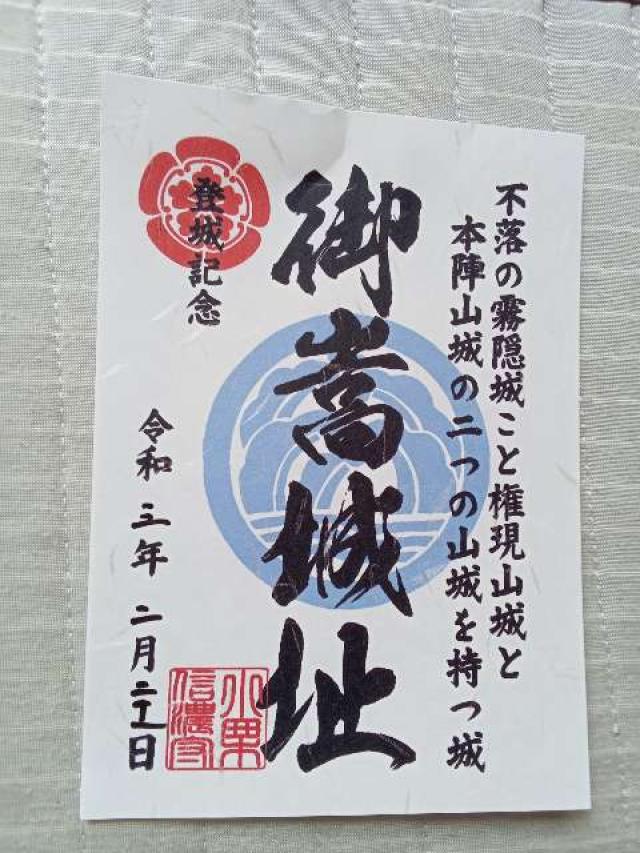 不落の霧隠城こと権現山城と
本陣山城の二つの山城を持つ城
御嵩城址
登城記念
令和三年二月二十一日
小栗
信濃守